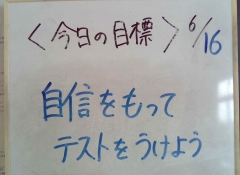 ＜今日の目標＞ 6/16
自信をもって
テストをうけよう